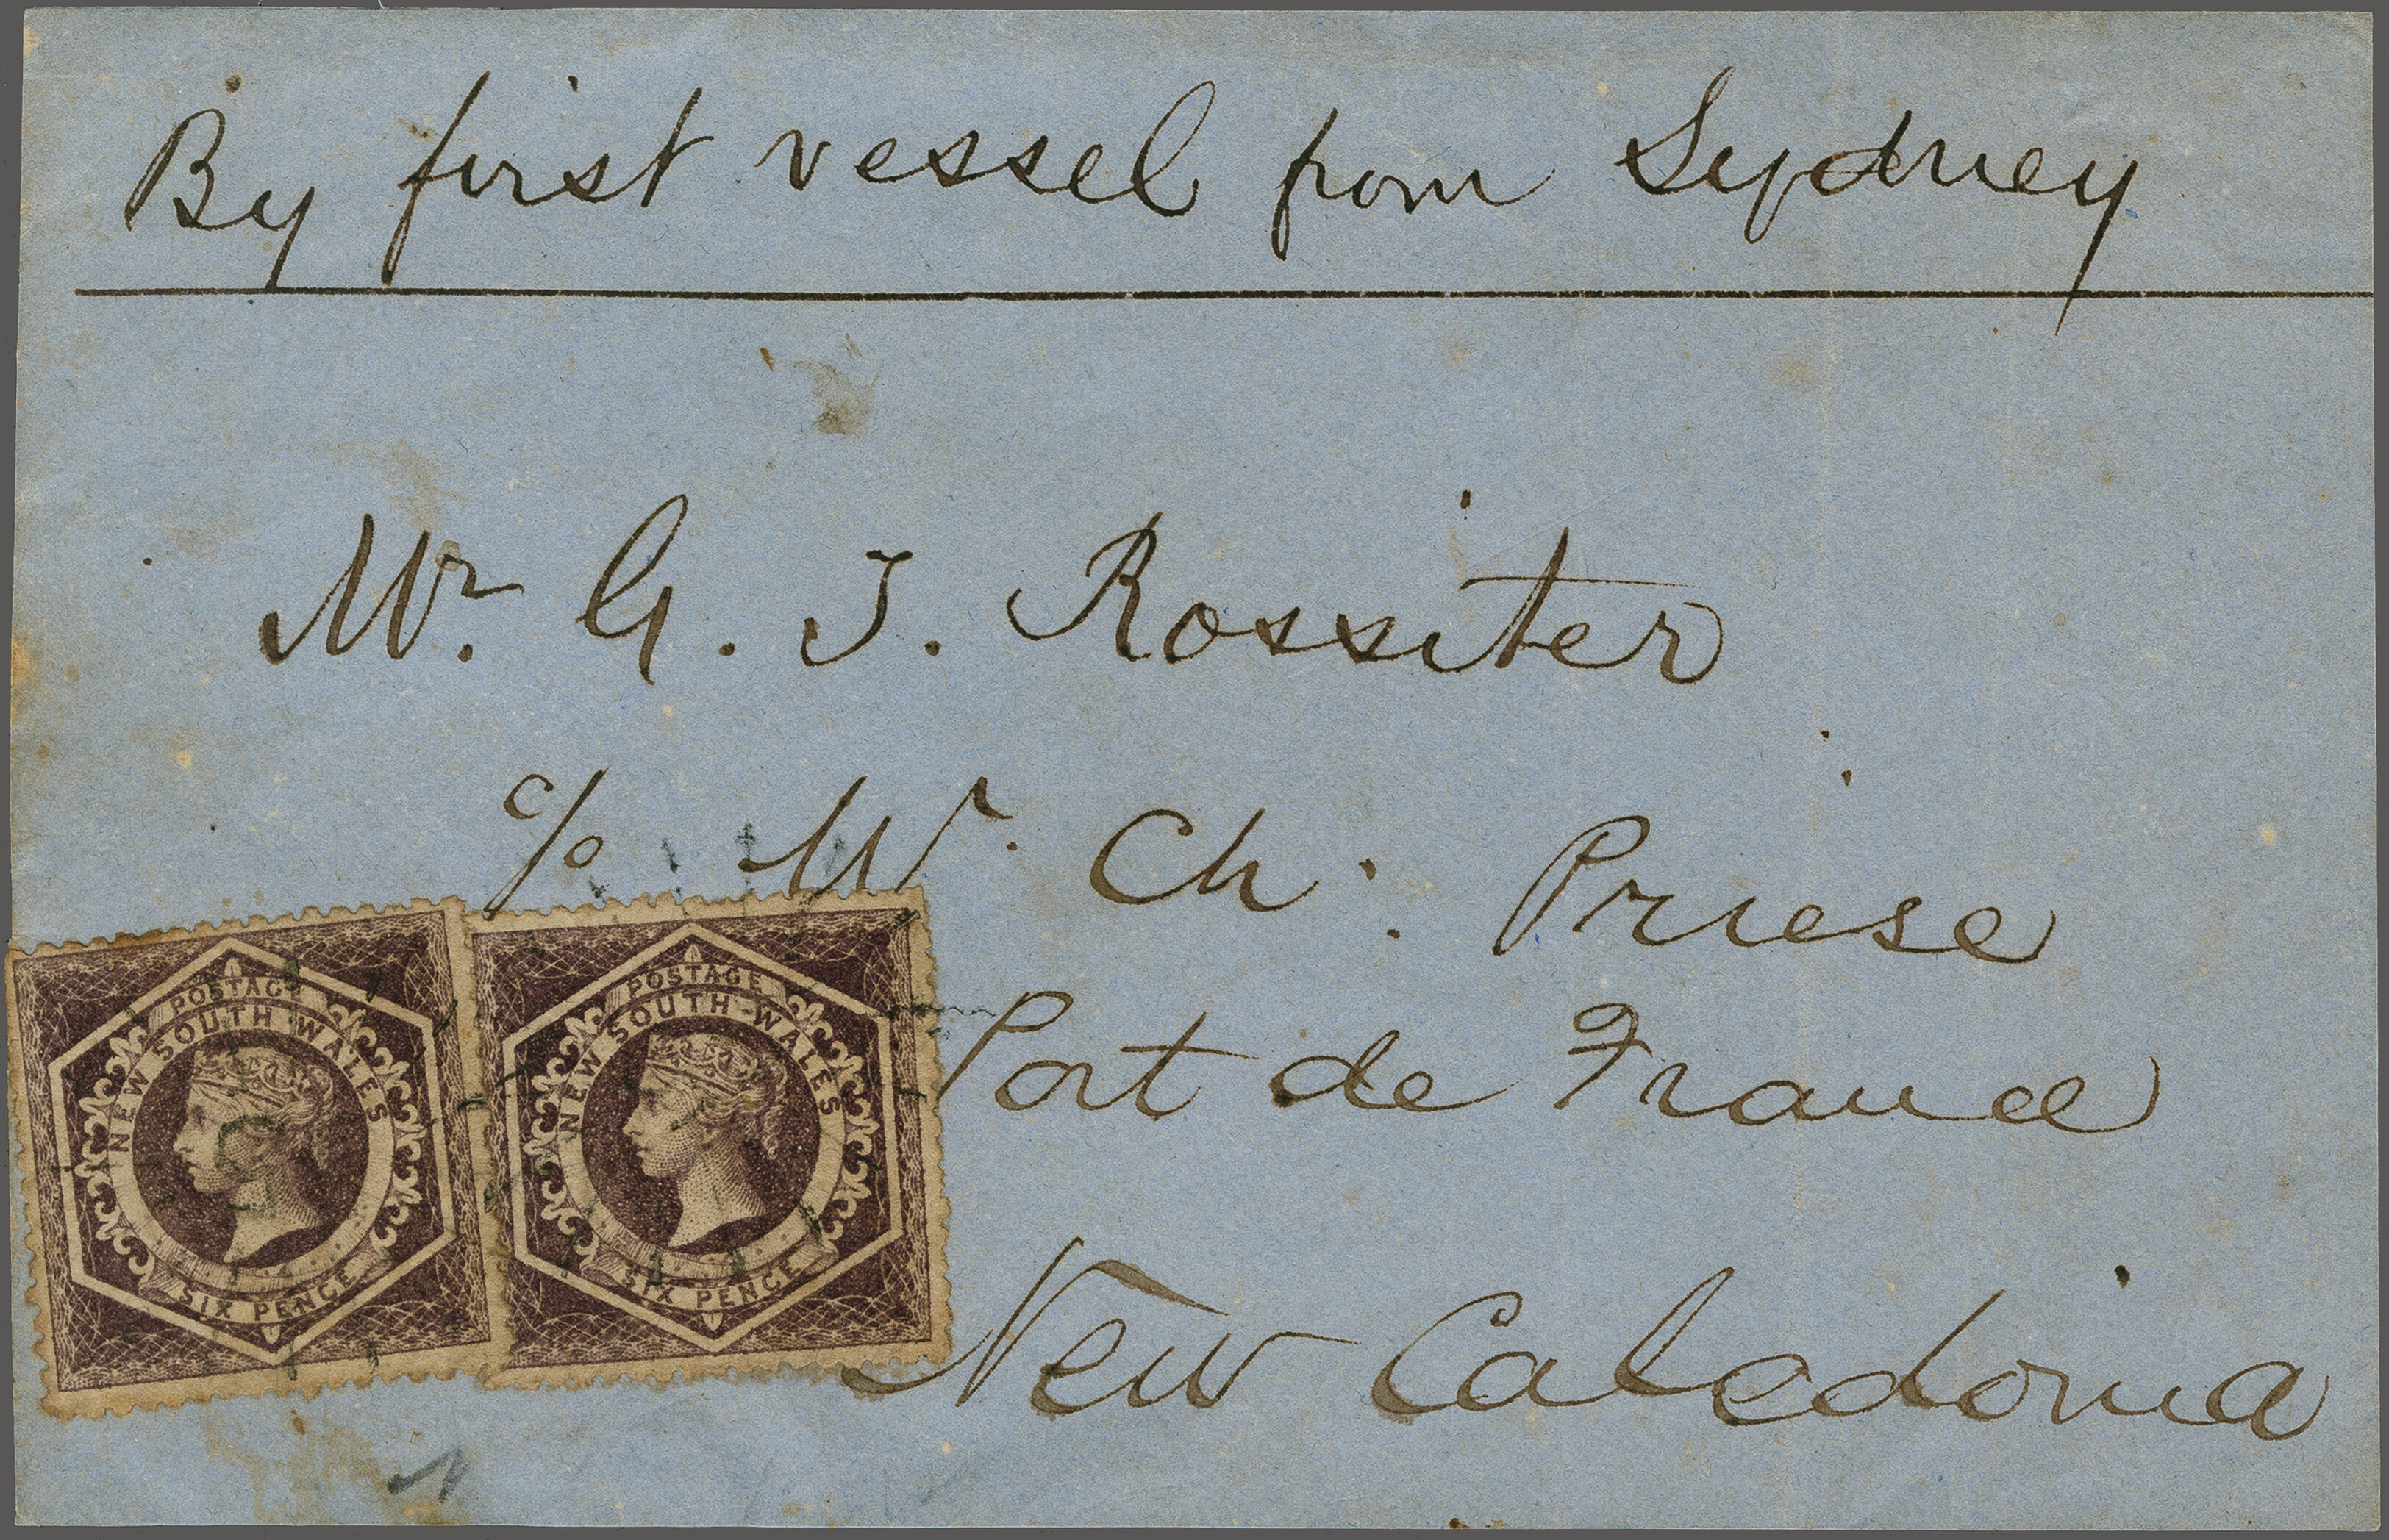 By first vessel from Sydney
Mr. G. J. Rossiter
c/o Mr. Ch: Priese
Port de France
New Caledonia
POSTAGE
NEW SOUTH WALES
SIX PENCE
POSTAGE
NEW SOUTH WALES
SIX PENCE